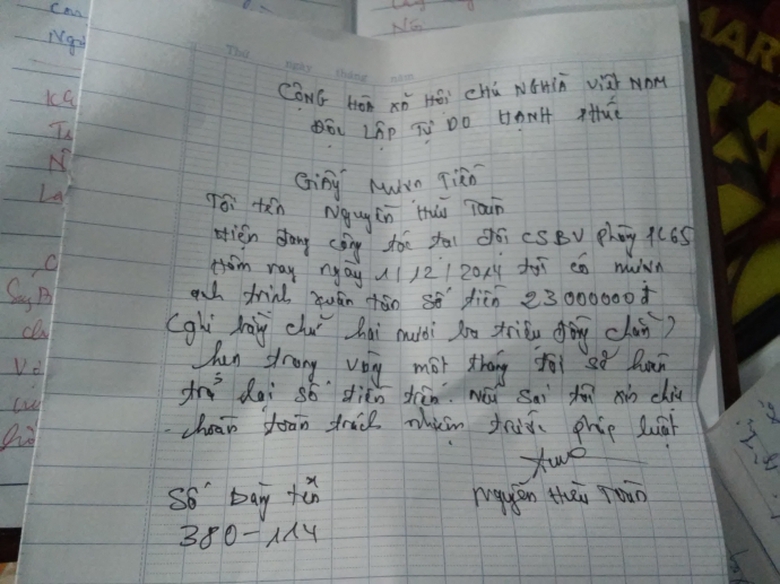 Thứ ngày tháng năm
CỘNG HÒA XÃ HỘI CHỦ NGHĨA VIỆT NAM
ĐỘC LẬP TỰ DO HẠNH PHÚC
Giấy mượn Tiền
Tôi tên Nguyễn Hữu Toàn
Hiện đang công tác tại đội CSBV phòng PC65
Hôm nay ngày 1/12/2014 tôi có mượn
anh Trịnh Xuân Tân số tiền 23000000đ
(ghi bằng chữ hai mươi ba triệu đồng chẵn)
hẹn trong vòng một tháng tôi sẽ hoàn
trả lại số tiền trên. Nếu sai tôi xin chịu
hoàn toàn trách nhiệm trước pháp luật
Nguyễn Hữu Toàn
Số
380-114